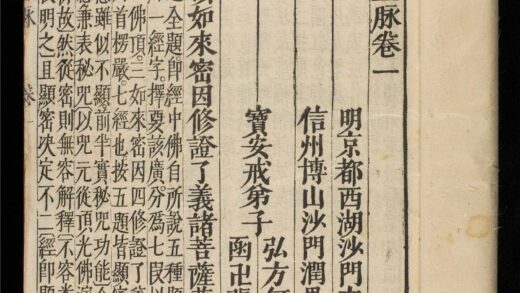 脈卷一
明京都西湖沙門
信州博山沙門潤
寶安戒弟子
弘方
函卍
如來密因修證了義諸菩薩
全題即經中佛自所說五種題
一經字。擇要該廣。分為七段以
佛頂。三如來密因四修證了
首楞嚴七經也按五題皆顯
意雖似不顯前半實秘咒功能
兼表秘咒以咒元後頂光佛
故然從密則無容解釋不容
明之且顯密決定不二經即顯